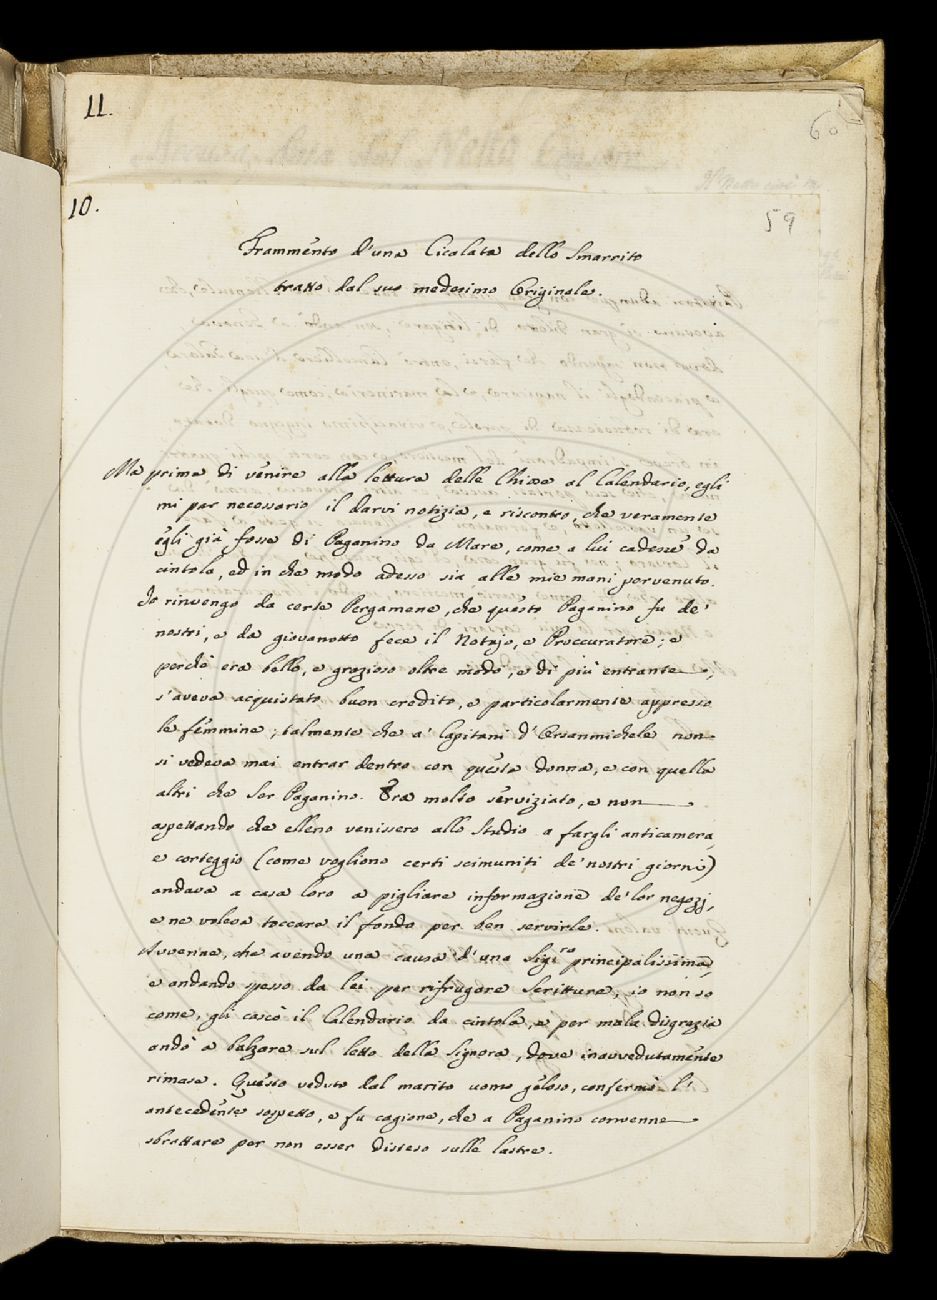 11.
60
10.
59
Frammento d'una Cicalata dello Smarrito
tratto dal suo medesimo Originale.
Ma prima di venire alla lettura delle Chiose al Calendario, egli
mi par necessario il darvi notizia, e riscontro, che veramente
egli già fosse di Paganino da Mare, come a lui cadesse da
cintola, ed in che modo adesso sia alle mie mani pervenuto.
Io rinvengo da certe Pergamene, che questo Paganino fu de'
nostri, e da giovanotto fece il Notajo, e Proccuratore; e
perchè era bello, e grazioso oltre modo, e di più entrante,
s'aveva acquistato buon credito, e particolarmente appresso
le femmine; talmente che a' Capitani d'Orsanmichele non
si vedeva mai entrar dentro con questa donna, e con quella
altri che Ser Paganino. Era molto serviziato, e non
aspettando che elleno venissero allo Studio a fargli anticamera,
e corteggio (come vogliono certi scimuniti de' nostri giorni)
andava a casa loro a pigliare informazione de' lor negozj,
e ne voleva toccare il fondo per ben servirle.
Avvenne, che avendo una causa d'una Sig.ra principalissima,
e andando spesso da lei per rifrugare Scritture, io non so
come, gli cascò il Calendario da cintola, e per mala disgrazia
andò a balzare sul letto della Signora, dove inavvedutamente
rimase. Questo veduto dal marito uomo geloso, confermò l'
antecedente sospetto, e fu cagione, che a Paganino convenne
sbrattare per non esser disteso sulle lastre.